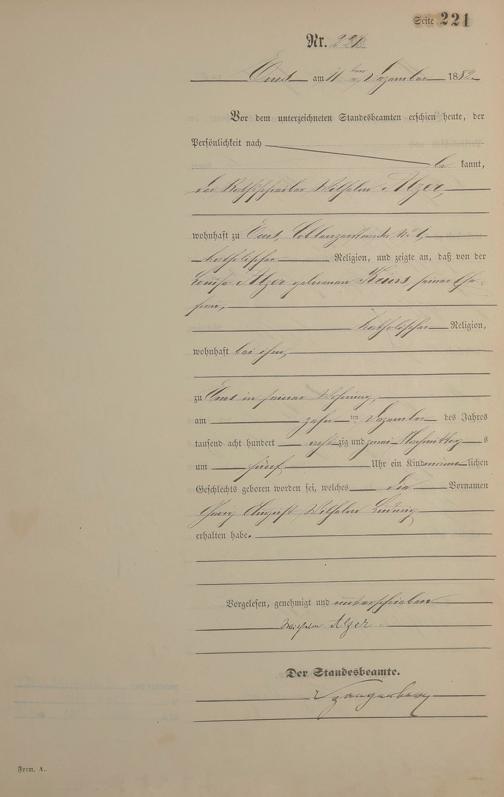 Seite 221
Nr. 221
Ems am 11 ten Dezember 1882
Vor dem unterzeichneten Standesbeamten erschien heute, der
Persönlichkeit nach
be kannt,
der Wilhelm Alzer,
wohnhaft zu Ems, Coblenzerstraße N. 1,
katholischer Religion, und zeigte an, daß von der
Louise Alzer geborenen seiner Ehe-
frau,
katholischer Religion,
wohnhaft bei ihm,
zu Ems in seiner Wohnung,
am zehn ten Dezember des Jahres
tausend acht hundert acht zig und zwei Nachmittag s
um fünf Uhr ein Kind männ lichen
Geschlechts geboren worden sei, welches die Vornamen
August Wilhelm Ludwig
erhalten habe.
Vorgelesen, genehmigt und unterschrieben
Wilhelm Alzer
Der Standesbeamte.
Form. A.